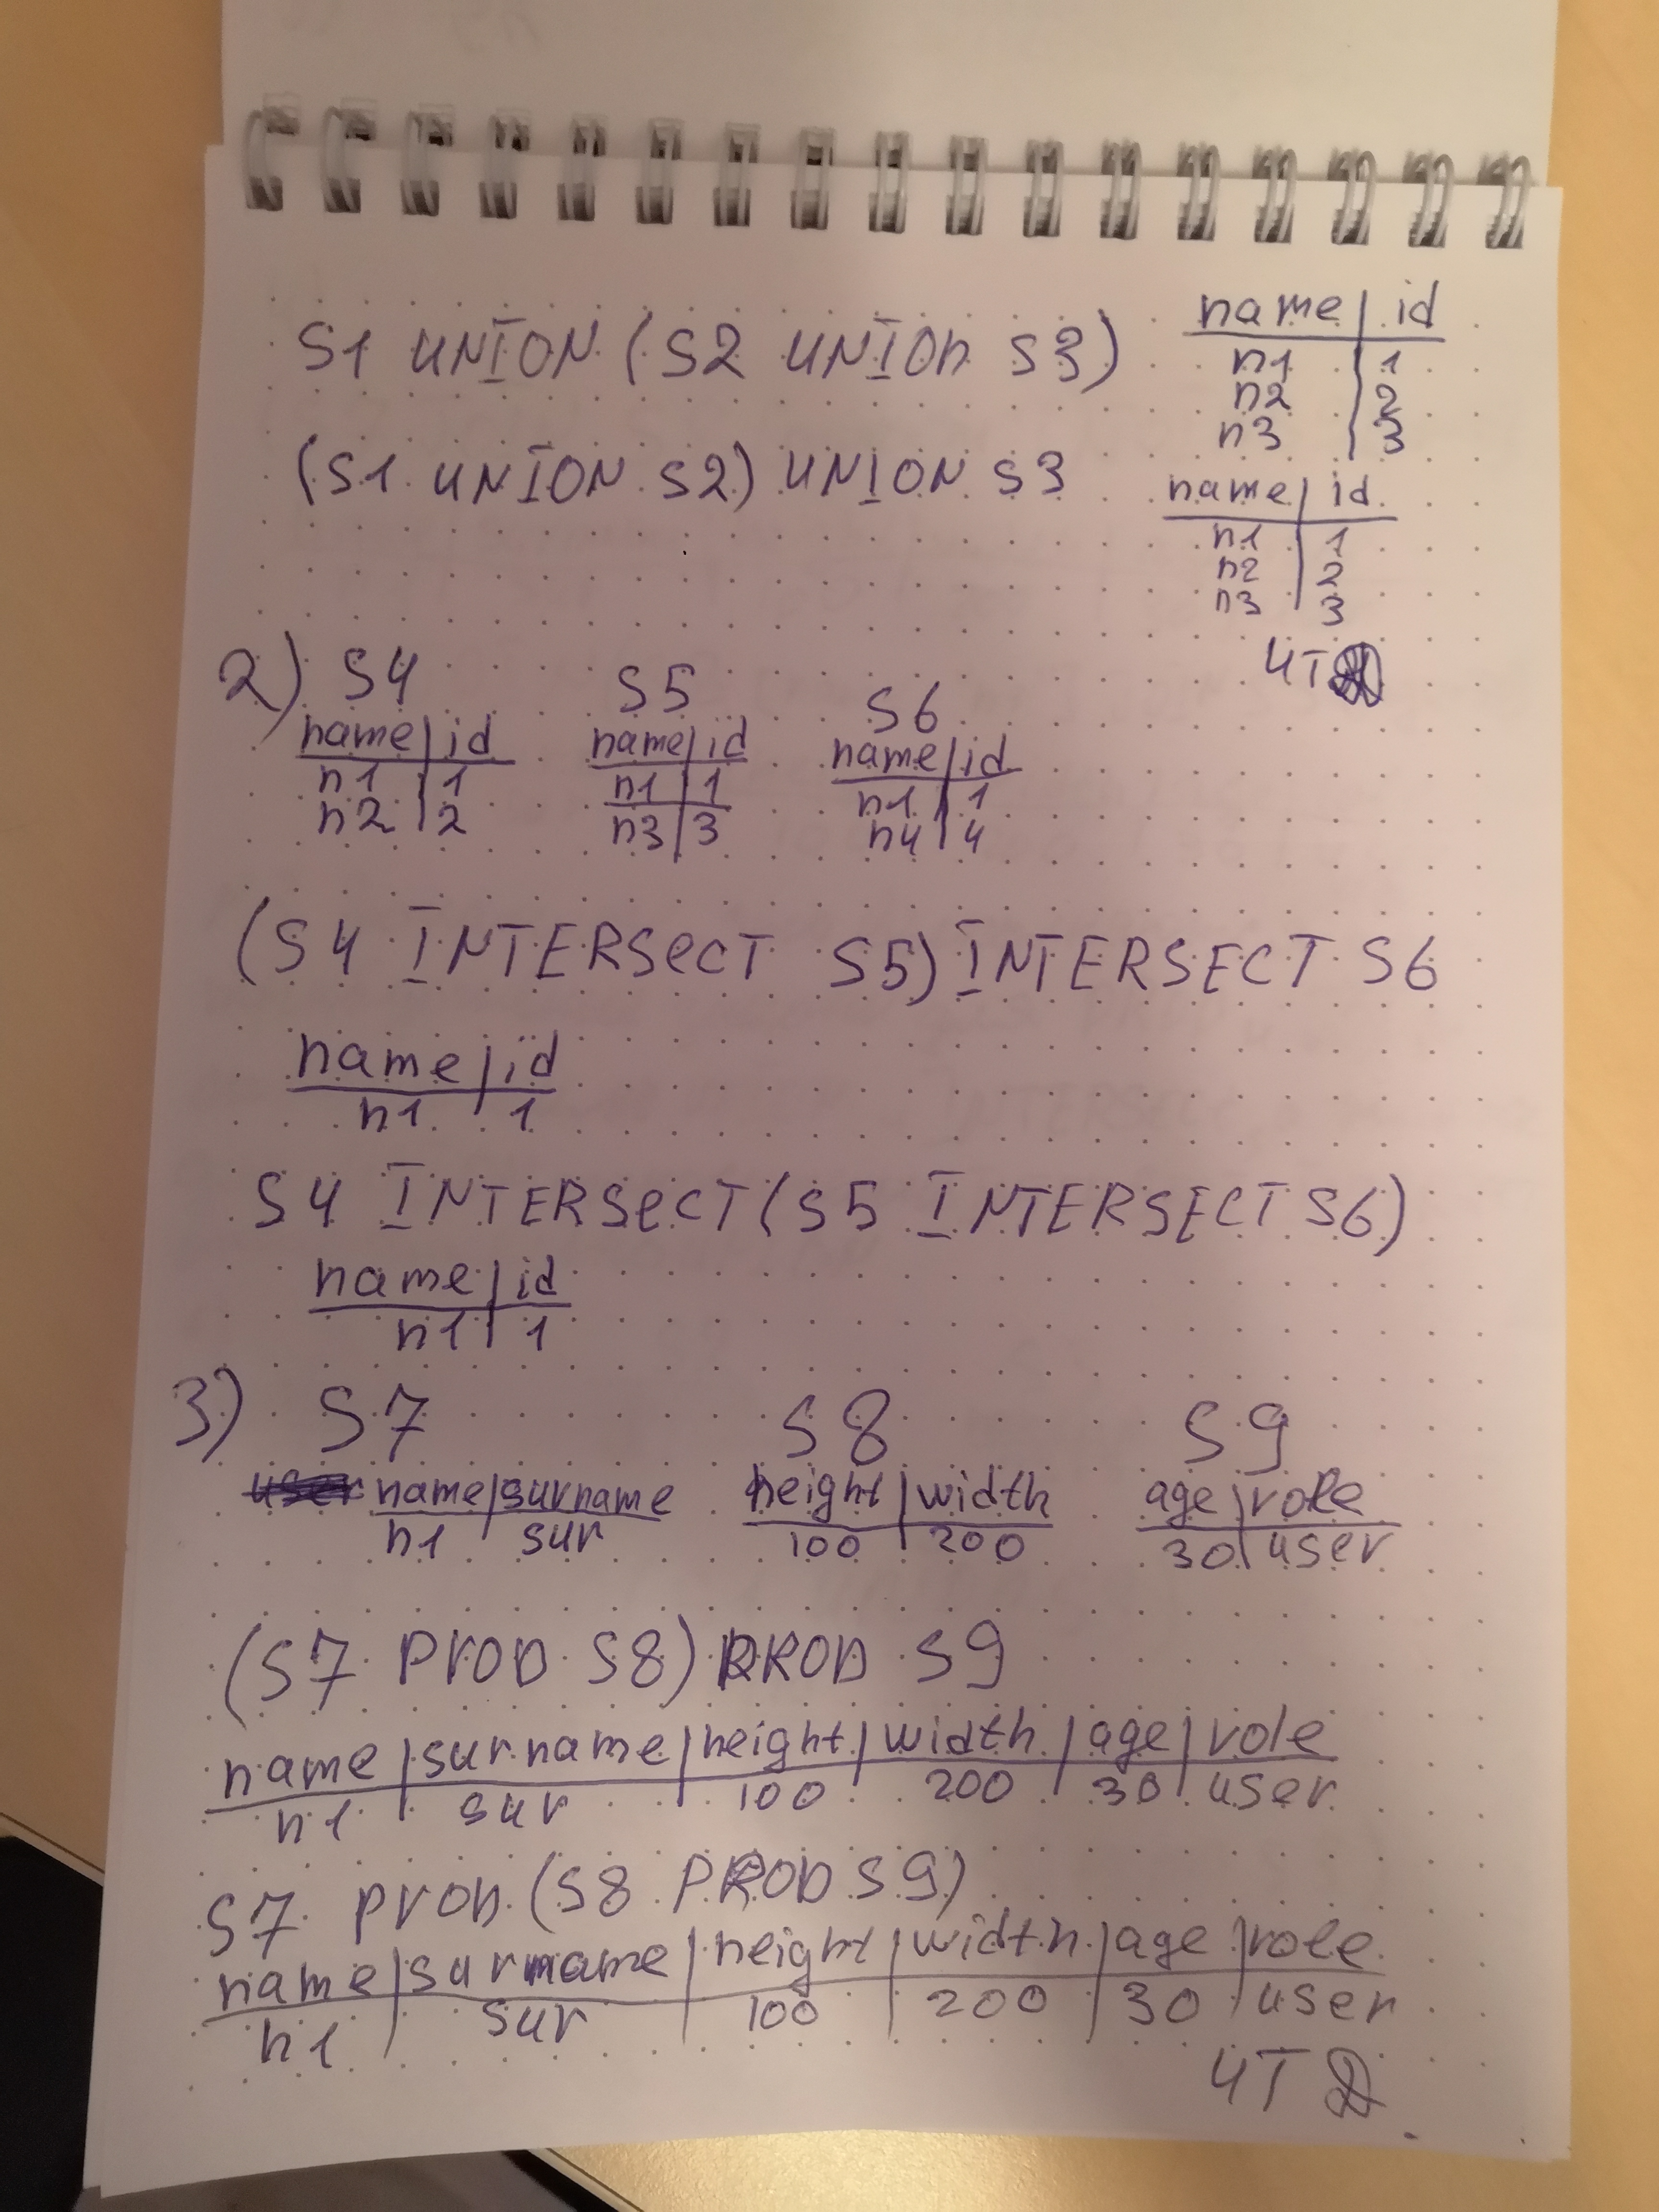 S1 UNION (S2 UNIOn S3)
name | id
n1 | 1
n2 | 2
n3 | 3
(S1 UNION S2) UNION S3
name | id
n1 | 1
n2 | 2
n3 | 3
ЧТ
2) S4 S5 S6
name | id name | id name | id
n1 | 1 n1 | 1 n1 | 1
n2 | 2 n3 | 3 n4 | 4
(S4 INTERSecT S5) INTERSECT S6
name | id
n1 | 1
S4 INTERSecT (S5 INTERSECT S6)
name | id
n1 | 1
3) S7 S8 S9
user name | surname height | width age | role
n1 | sur 100 | 200 30 | user
(S7 PrOD S8) PROD S9
name | surname | height | width | age | role
n1 | sur | 100 | 200 | 30 | user
S7 prOD (S8 PROD S9)
name | surname | height | width | age | role
n1 | sur | 100 | 200 | 30 | user
ЧТД